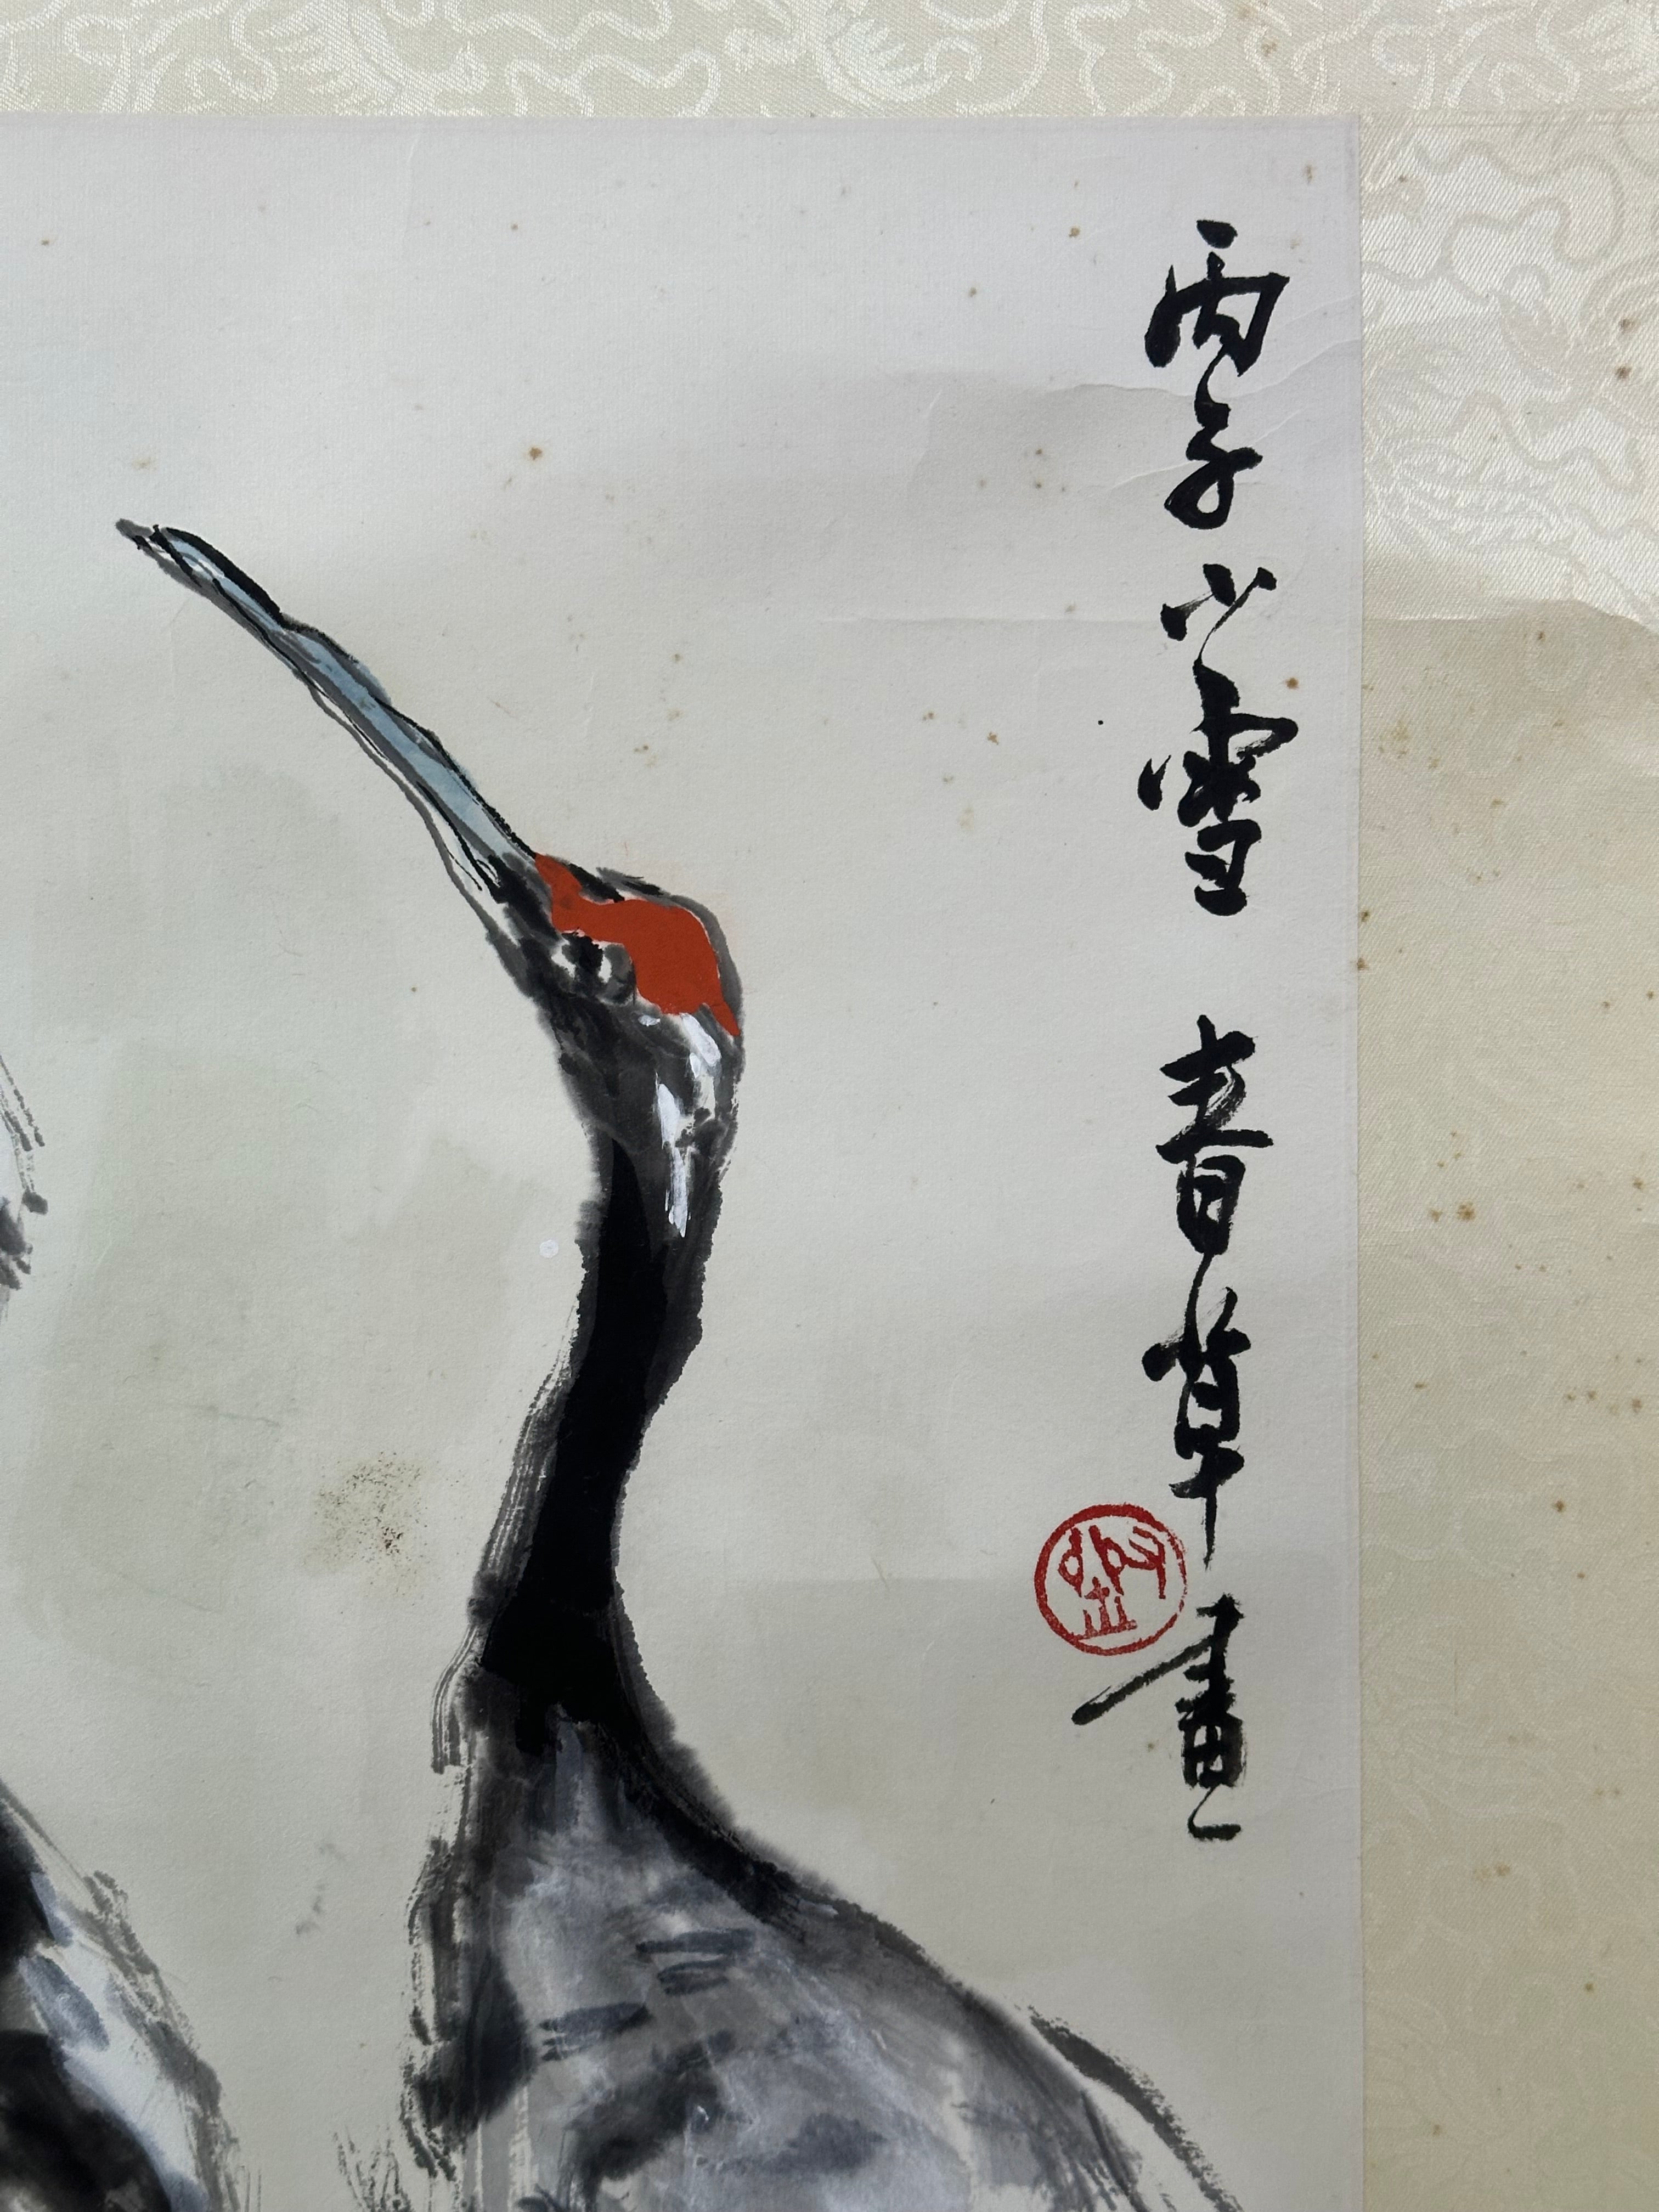 丙子小雪 春草畫